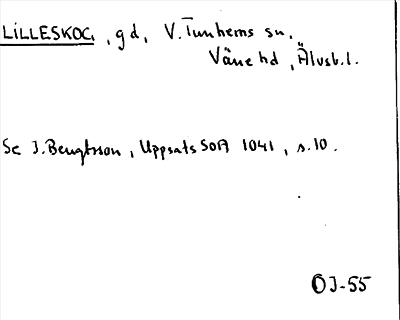 LILLESKOG, gd, V. Tunhems sn,
Väne hd, Älvsb.l.
Se J. Bengtsson, Uppsats SOÄ 1041, s.10.
OJ-55